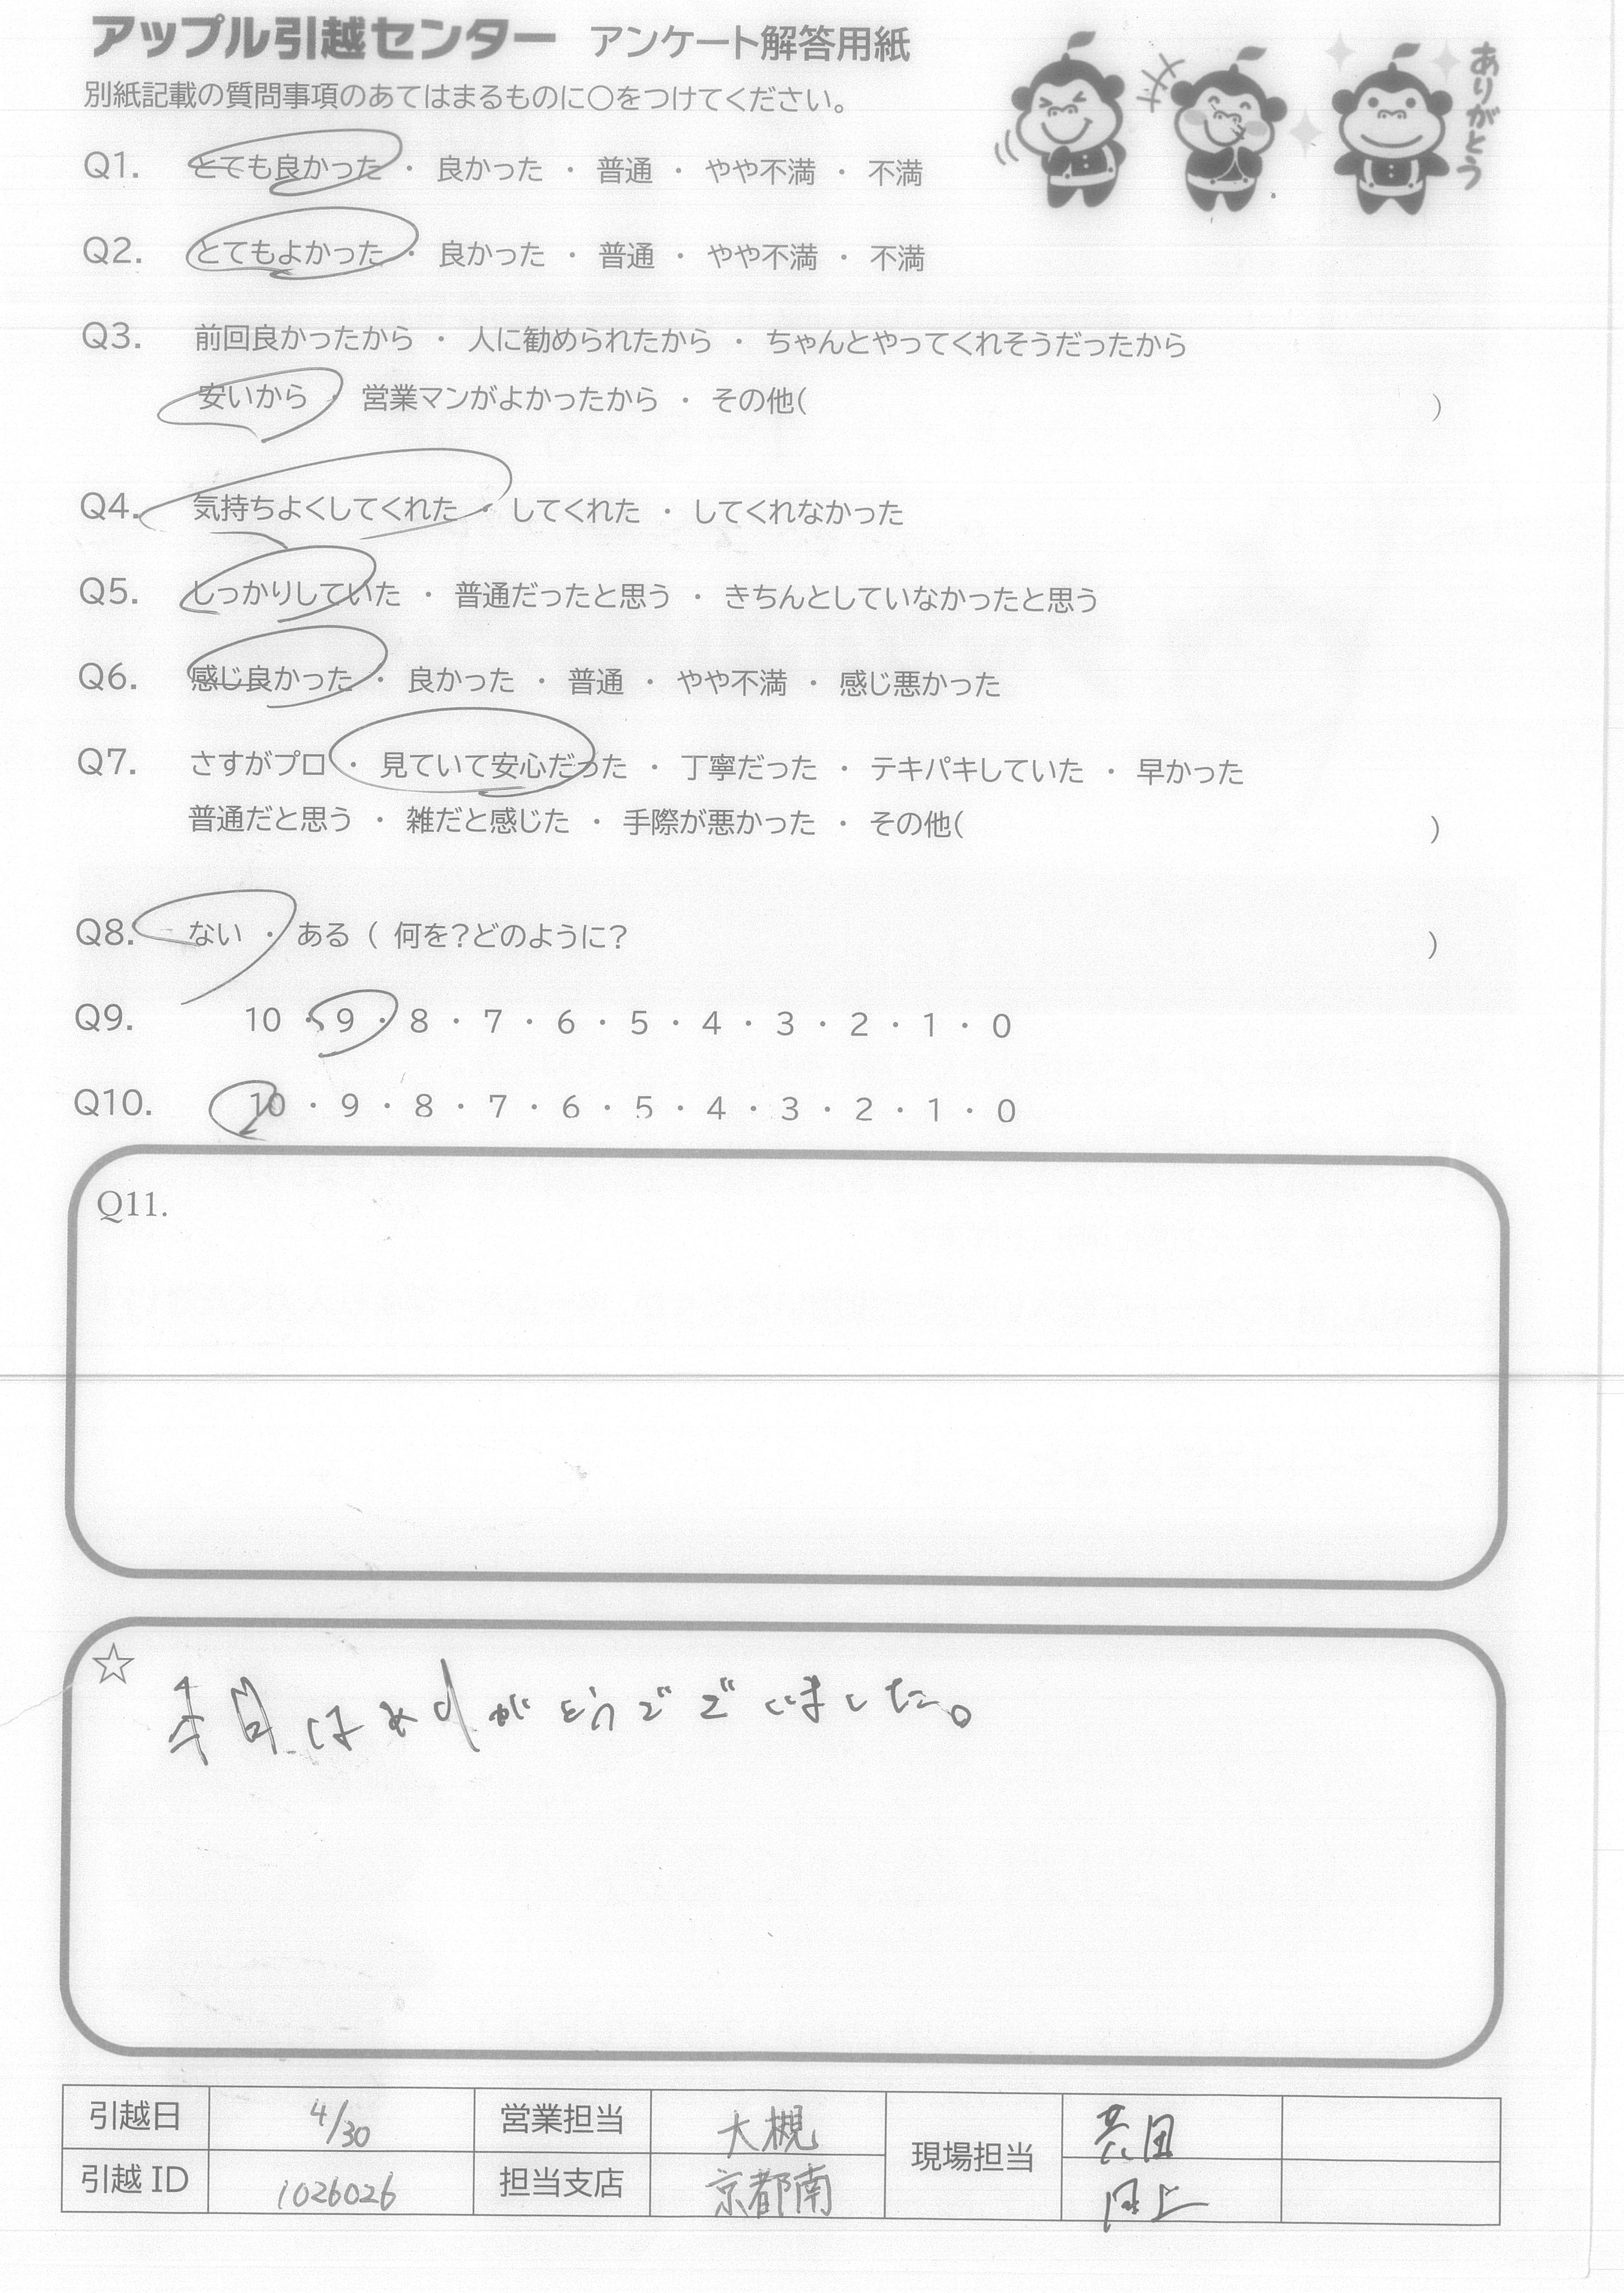 アップル引越センター アンケート解答用紙
別紙記載の質問事項のあてはまるものに〇をつけてください。
ありがとう
Q1. とても良かった ・ 良かった ・ 普通 ・ やや不満 ・ 不満
Q2. とてもよかった ・ 良かった ・ 普通 ・ やや不満 ・ 不満
Q3. 前回良かったから ・ 人に勧められたから ・ ちゃんとやってくれそうだったから
安いから ・ 営業マンがよかったから ・ その他( )
Q4. 気持ちよくしてくれた ・ してくれた ・ してくれなかった
Q5. しっかりしていた ・ 普通だったと思う ・ きちんとしていなかったと思う
Q6. 感じ良かった ・ 良かった ・ 普通 ・ やや不満 ・ 感じ悪かった
Q7. さすがプロ ・ 見ていて安心だった ・ 丁寧だった ・ テキパキしていた ・ 早かった
普通だと思う ・ 雑だと感じた ・ 手際が悪かった ・ その他( )
Q8. ない ・ ある ( 何を?どのように? )
Q9. 10 ・ 9 ・ 8 ・ 7 ・ 6 ・ 5 ・ 4 ・ 3 ・ 2 ・ 1 ・ 0
Q10. 10 ・ 9 ・ 8 ・ 7 ・ 6 ・ 5 ・ 4 ・ 3 ・ 2 ・ 1 ・ 0
Q11.
☆
本日はありがとうございました。
引越日 4/30 営業担当 大槻 現場担当
引越ID 1026026 担当支店 京都南